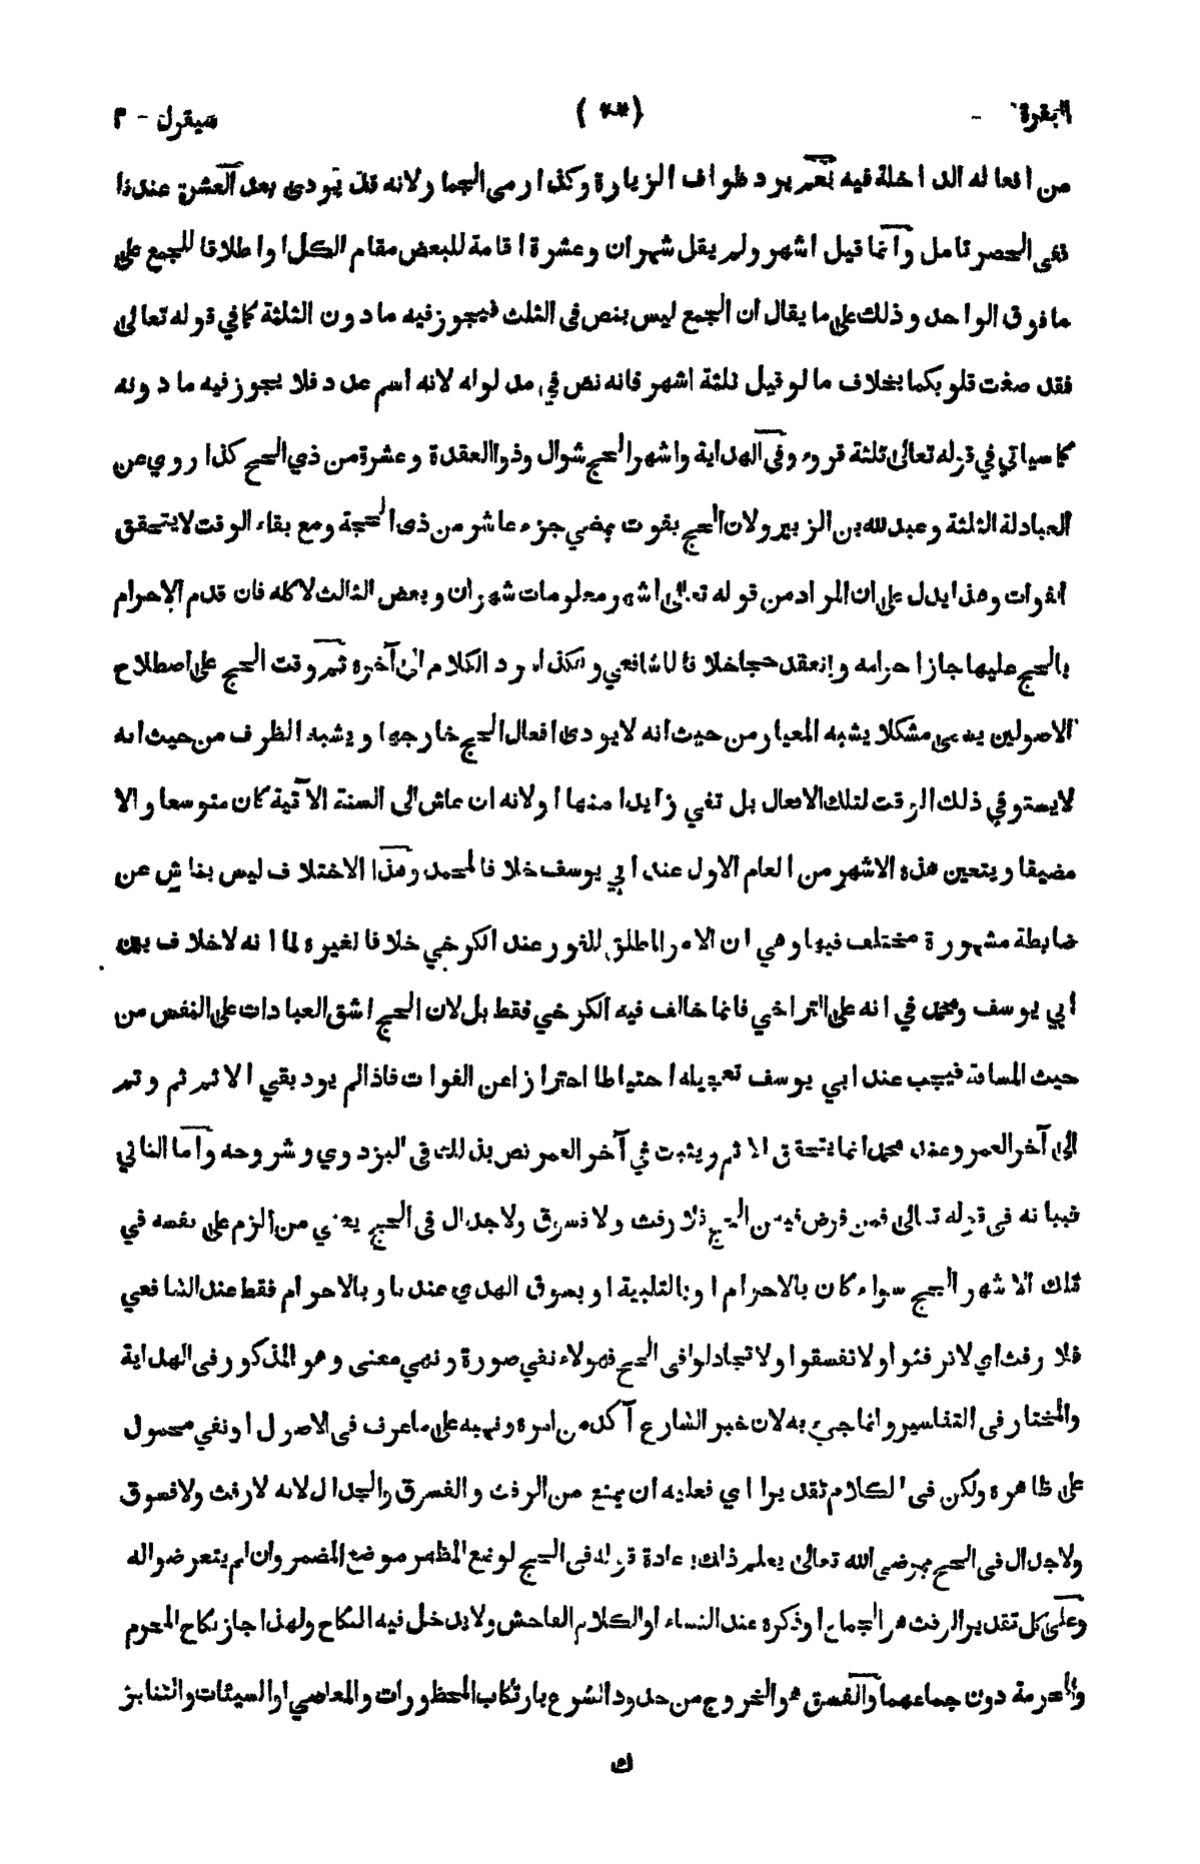 البقرة - ( ** ) سيقول - ٢
من افعاله الداخلة فيه نعم يرد طواف الزيارة وكذا رمي الجمار لانه قد يودى بعد العشرة عندنا
نفى الحصر تامل وانما قيل اشهر ولم يقل شهران وعشرة اقامة للبعض مقام الكل او اطلاقا للجمع على
ما فوق الواحد وذلك على ما يقال ان الجمع ليس بنص فى الثلث فيجوز فيه ما دون الثلثة كما في قوله تعالى
فقد صغت قلوبكما بخلاف ما لو قيل ثلثة اشهر فانه نص في مدلوله لانه اسم عدد فلا يجوز فيه ما دونه
كما سياتي في قوله تعالى ثلثة قروء وفى الهداية واشهر الحج شوال وذوا القعدة وعشرة من ذي الحج كذا روي عن
العبادلة الثلثة وعبد لله بن الزبير ولان الحج بفوت بمضي جزء عاشر من ذى الحجة ومع بقاء الوقت لايتحقق
الفوات وهذا يدل على ان المراد من قوله تعالى اشهر معلومات شهران وبعض الثالث لا كله فان قدم الاحرام
بالحج عليها جاز احرامه وانعقد حجا خلافا للشافعي وهكذا اورد الكلام الى آخره ثم وقت الحج على اصطلاح
الاصولين يسمى مشكلا يشبه المعيار من حيث انه لايودى افعال الحج خارجها ويشبه الظرف من حيث انه
لايستوفي ذلك الوقت لتلك الافعال بل تفي زايدا منها او لانه ان عاش الى السنة الآتية كان متوسعا والا
مضيقا ويتعين هذه الاشهر من العام الاول عند ابي يوسف خلافا لمحمد وهذا الاختلاف ليس بناش عن
ضابطة مشهورة مختلف فيها وهي ان الامر المطلق للفور عند الكرخي خلافا لغيره لما انه لاخلاف بين
ابي يوسف ومحمد في انه على التراخي فانما خالف فيه الكرخي فقط بل لان الحج اشق العبادات على النفس من
حيث المسافة فيجب عند ابي يوسف تعجيله احتياطا احترازا عن الفوات فاذا لم يود بقي الاثم ثم وثم
الى آخر العمر وعند محمد انما يتحقق الاثم ويثبت في آخر العمر نص بذلك فى البزدوي وشروحه واما الثاني
فبيانه فى قوله تعالى فمن فرض فيهن الحج فلا رفث ولا فسوق ولا جدال فى الحج يعني من الزم على نفسه في
تلك الاشهر الحج سواء كان بالاحرام او بالتلبية او بسوق الهدي عندنا او بالاحرام فقط عند الشافعي
فلا رفث اي لا ترفثوا ولا تفسقوا ولا تجادلوا فى الحج فهولاء نفي صورة ونهي معنى وهو المذكور فى الهداية
والمختار فى التفاسير وانما جيء به لان خبر الشارع آكد من امره ونهيه على ما عرف فى الاصول او نفي محمول
على ظاهره ولكن فى الكلام تقديرا اي فعليه ان يمنع من الرفث والفسوق والجدال لانه لا رفث ولا فسوق
ولا جدال فى الحج بمرضي الله تعالى يعلم ذلك اعادة قوله فى الحج لوضع المظهر موضع المضمر وان لم يتعرضوا له
وعلى كل تقدير الرفث هو الجماع او ذكره عند النساء او الكلام الفاحش ولا يدخل فيه النكاح ولهذا جاز نكاح المحرم
والمحرمة دون جماعهما والفسق هو الخروج من حدود الشرع بارتكاب المحظورات والمعاصي او السيئات والتنابز
ك